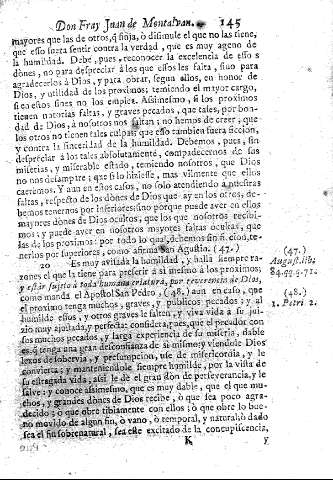 Don Fray Juan de Montalvan. 145
mayores que las de otros, q̃ finja, ò dissimule el que no las tiene,
que esso fuera sentir contra la verdad, que es muy ageno de
la humildad. Debe, pues, reconocer la excelencia de essos
dònes, no para despreciar à los que essos les falta, sino para
agradecerlos à Dios, y para obrar, segun ellos, en honor de
Dios, y utilidad de los proximos; temiendo el mayor cargo,
si en estos fines no los emplea. Assimesmo, si los proximos
tienen notorias faltas, y graves pecados, que tales, por bon-
dad de Dios, à nosotros nos faltan; no hemos de creer, que
los otros no tienen tales culpas: que esso tambien fuera ficcion,
y contra la sinceridad de la humildad. Debemos, pues, sin
despreciar à los tales absolutamente, compadecernos de sus
miserias, y miserable estado, temiendo nosotros, que Dios
no nos desampare; que si lo hiziesse, mas vilmente que ellos
caeremos. Y aun en essos casos, no solo atendiendo à nuestras
faltas, respecto de los dònes de Dios que ay en los otros, de-
bemos tenernos por inferiores: sino porque puede aver en ellos
mayores dònes de Dios ocultos, que los que nosotros recibi-
mos; y puede aver en nosotros mayores faltas ocultas, que
las de los proximos: por todo lo qual, debemos sin ficcion, te-
nerlos por superiores, como afirma San Agustin. (47.)
20 Es muy avisada la humildad, y halla siempre ra-
zones el que la tiene para preferir à si mesmo à los proximos;
y estàr sujeto à toda humana criatura, por reverencia de Dios,
como manda el Apostol San Pedro, (48.) aun en caso, que
el proximo tenga muchos, graves, y publicos pecados; y al
humilde essos, y otros graves le falten, y viva vida à su jui-
zio muy ajustada, y perfecta; considera, pues, que el pecador con
sus muchos pecados, y larga experiencia de su miseria, dable
es, q̃ tenga una gran desconfianza de si mismo; y viendole Dios
lexos de sobervia, y presumpcion, use de misericordia, y le
convierta; y manteniendole siempre humilde, por la vista de
su estragada vida; assi le dè el gran dòn de perseverancia, y le
salve: y conoce assimesmo, que es muy dable, que el que mu-
chos, y grandes dònes de Dios recibe, ò que sea poco agra-
decido; ò que obre tibiamente con ellos; ò que obre lo bue-
no movido de algun fin, ò vano, ò temporal, y natural; ò dado
sea el fin sobrenatural, sea este excitado de la concupiscencia,
K y
(47.)
August. lib.
84. qq. q. 71.
(48.)
1. Petri 2.